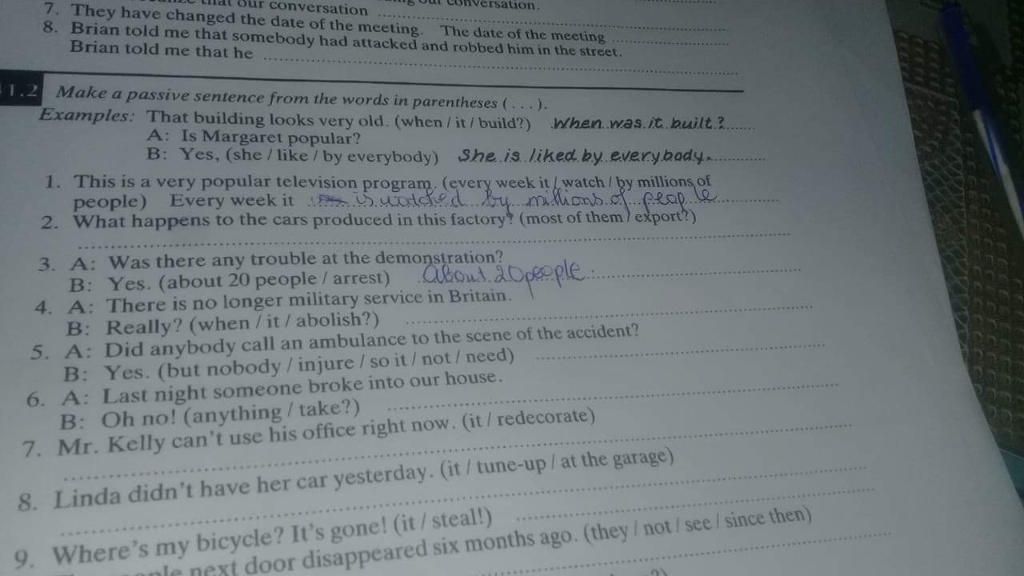 that our conversation
conversation.
7. They have changed the date of the meeting. The date of the meeting
8. Brian told me that somebody had attacked and robbed him in the street.
Brian told me that he
1.2 Make a passive sentence from the words in parentheses ( . . . ).
Examples: That building looks very old. (when / it / build?) When was it built?
A: Is Margaret popular?
B: Yes, (she / like / by everybody) She is liked by everybody.
1. This is a very popular television program. (every week it / watch / by millions of
people) Every week it is watched by millions of people
2. What happens to the cars produced in this factory? (most of them / export?)
3. A: Was there any trouble at the demonstration?
B: Yes. (about 20 people / arrest) About 20 people
4. A: There is no longer military service in Britain.
B: Really? (when / it / abolish?)
5. A: Did anybody call an ambulance to the scene of the accident?
B: Yes. (but nobody / injure / so it / not / need)
6. A: Last night someone broke into our house.
B: Oh no! (anything / take?)
7. Mr. Kelly can't use his office right now. (it / redecorate)
8. Linda didn't have her car yesterday. (it / tune-up / at the garage)
9. Where's my bicycle? It's gone! (it / steal!)
next door disappeared six months ago. (they / not / see / since then)